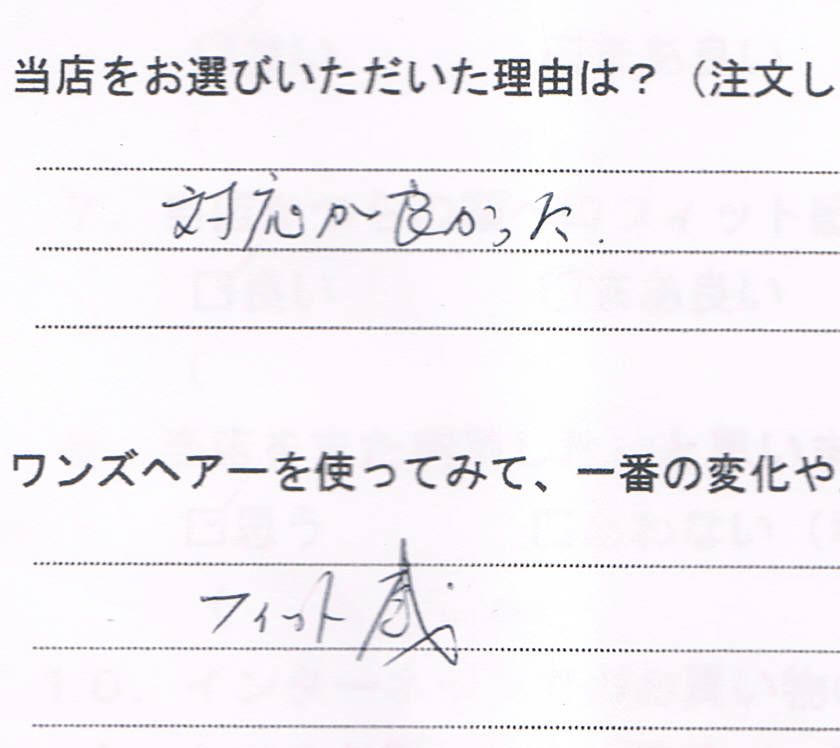 当店をお選びいただいた理由は？（注文し
対応が良かった.
ワンズヘアーを使ってみて、一番の変化や
フィット感